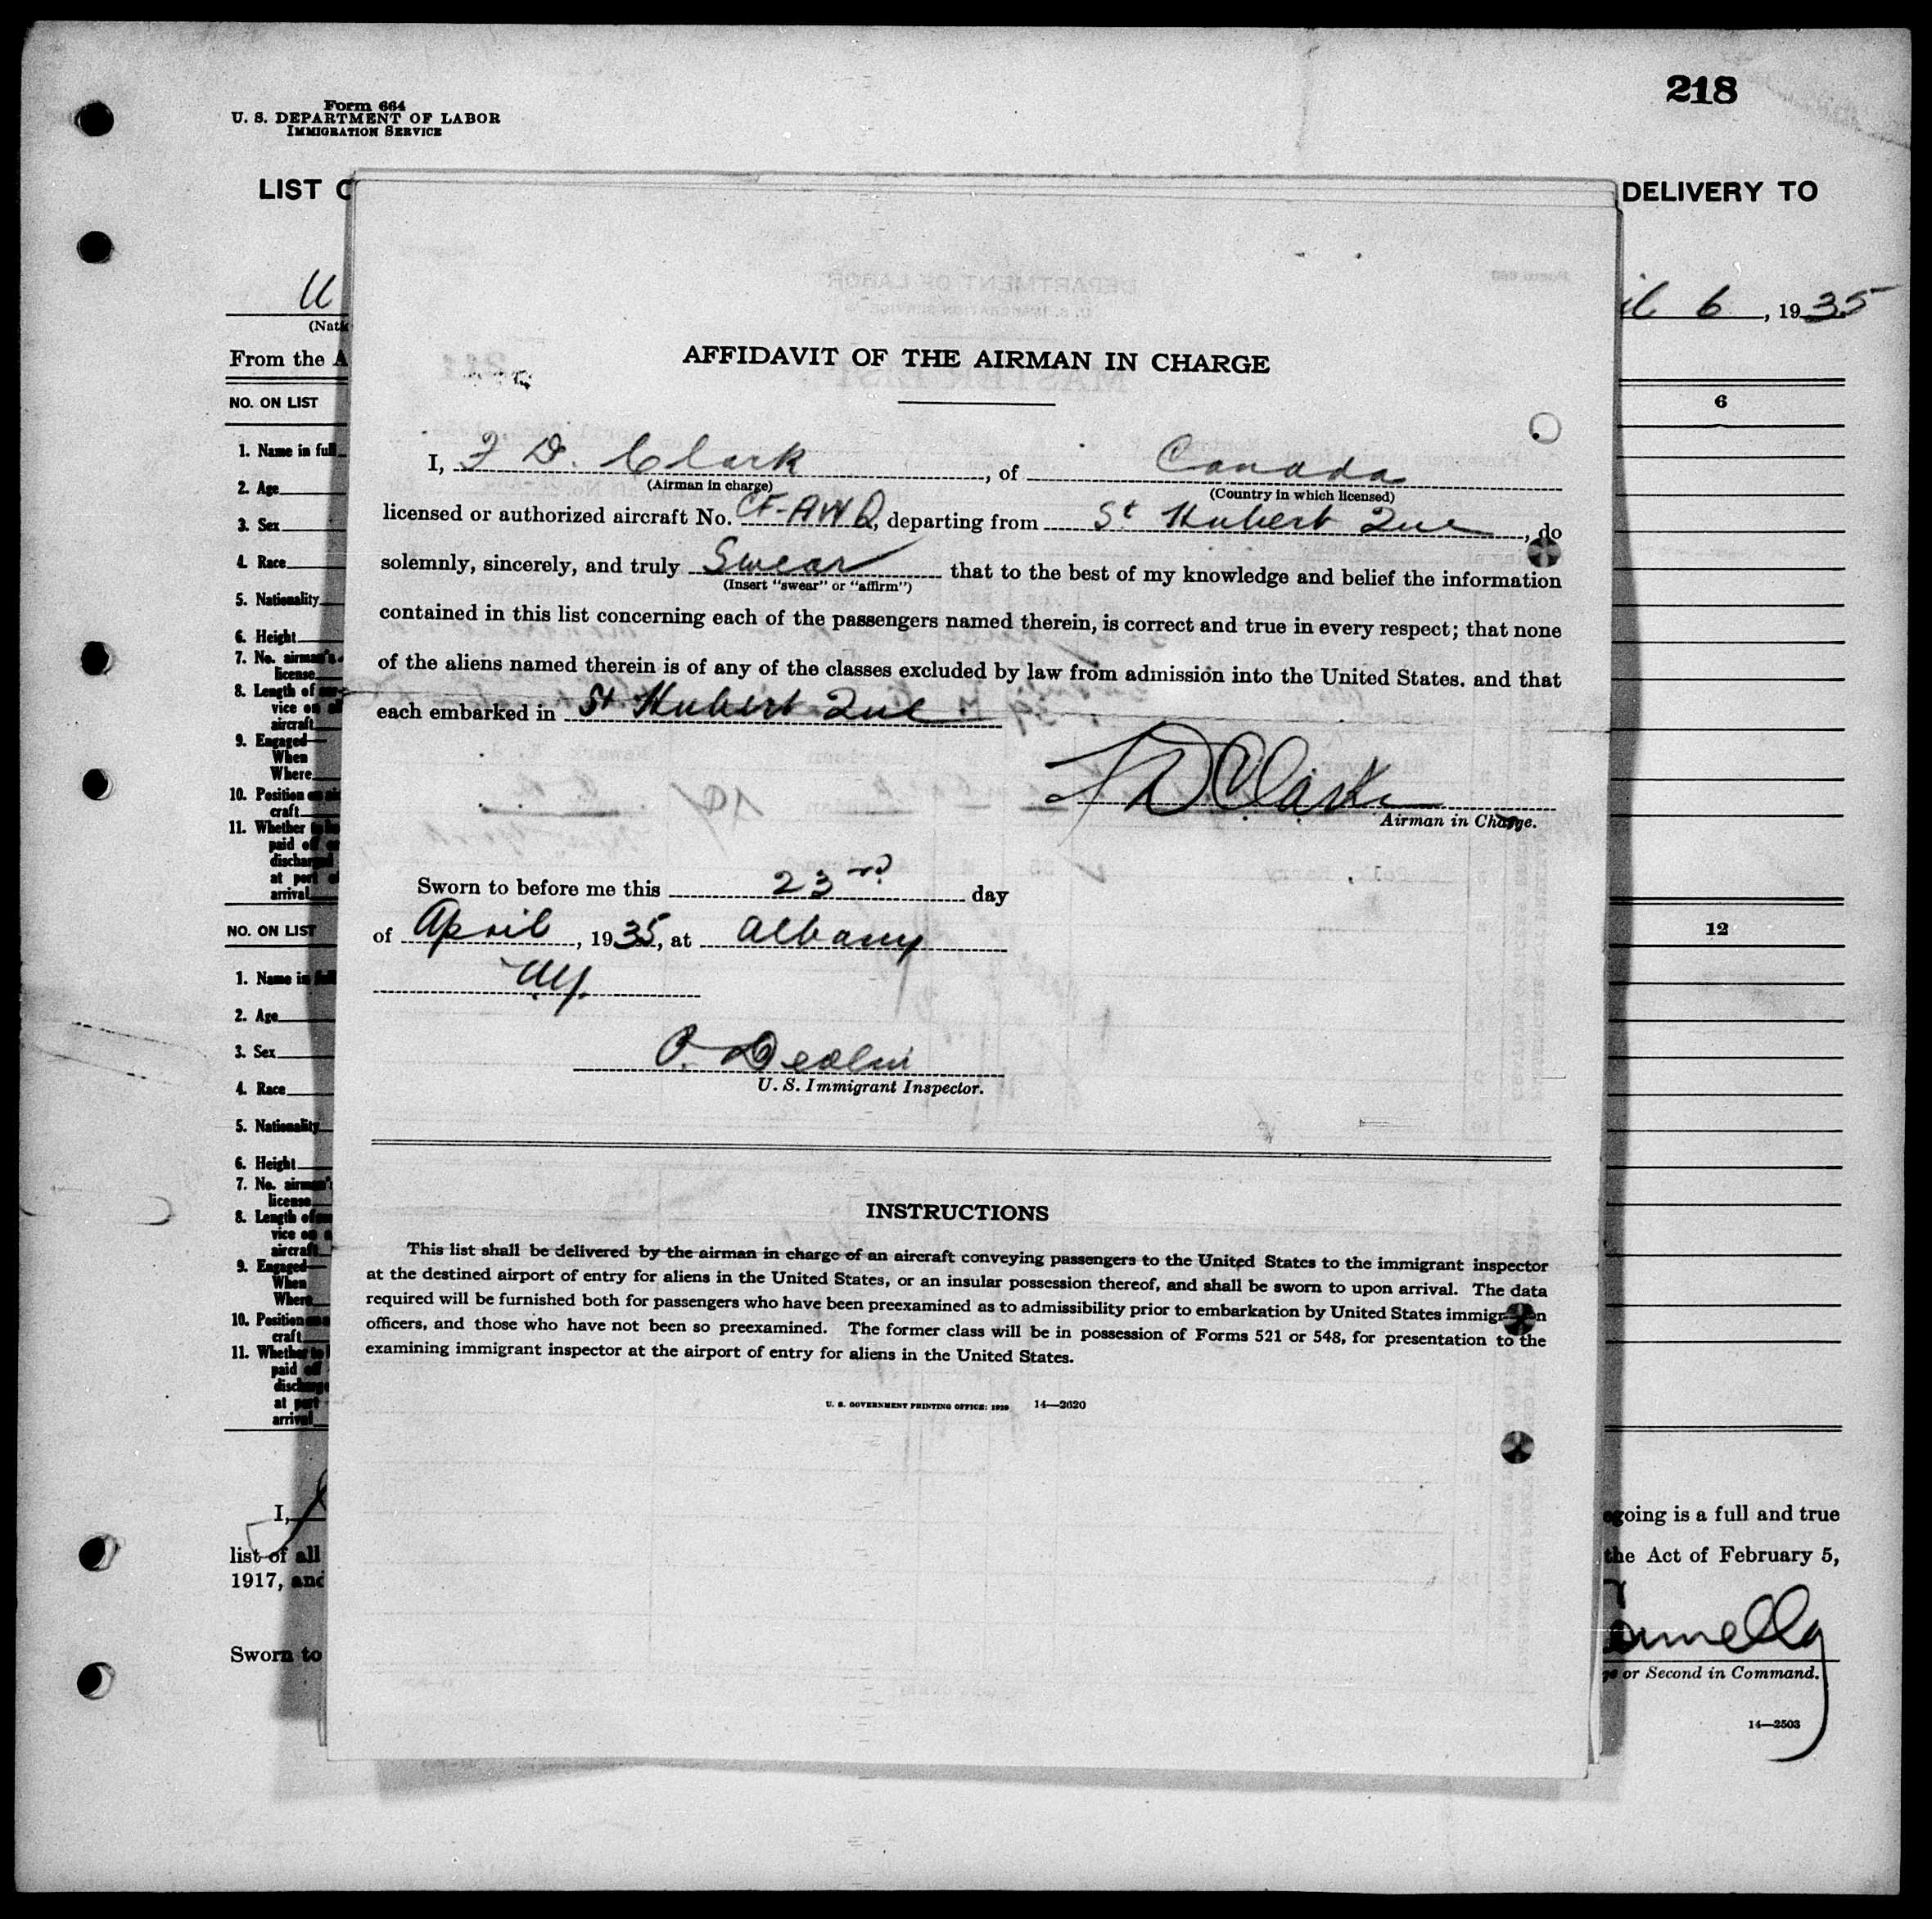 218
Form 664
U. S. DEPARTMENT OF LABOR
IMMIGRATION SERVICE
LIST O
DELIVERY TO
U
(Nati
il 6, 1935
From the A
NO. ON LIST
6
1. Name in full
2. Age
3. Sex
4. Race
5. Nationality
6. Height
7. No. airman's
license
8. Length of ser-
vice on
aircraft
9. Engaged—
When
Where
10. Position on air
craft
11. Whether to be
paid off or
discharged
at port of
arrival
NO. ON LIST
12
1. Name in full
2. Age
3. Sex
4. Race
5. Nationality
6. Height
7. No. airman's
license
8. Length of
vice on a
aircraft
9. Engaged—
When
Where
10. Position
craft
11. Whether to
paid off
discharge
at port
arrival
I,
list of all
1917, and
Sworn to
AFFIDAVIT OF THE AIRMAN IN CHARGE
I, F D. Clark, of Canada
(Airman in charge)
(Country in which licensed)
licensed or authorized aircraft No. CF-AWQ, departing from St Hubert Que, do
solemnly, sincerely, and truly Swear that to the best of my knowledge and belief the information
(Insert "swear" or "affirm")
contained in this list concerning each of the passengers named therein, is correct and true in every respect; that none
of the aliens named therein is of any of the classes excluded by law from admission into the United States. and that
each embarked in St Hubert Que
F D Clarke
Airman in Charge.
Sworn to before me this 23rd day
of April, 1935, at Albany
NY.
U. S. Immigrant Inspector.
INSTRUCTIONS
This list shall be delivered by the airman in charge of an aircraft conveying passengers to the United States to the immigrant inspector
at the destined airport of entry for aliens in the United States, or an insular possession thereof, and shall be sworn to upon arrival. The data
required will be furnished both for passengers who have been preexamined as to admissibility prior to embarkation by United States immigration
officers, and those who have not been so preexamined. The former class will be in possession of Forms 521 or 548, for presentation to the
examining immigrant inspector at the airport of entry for aliens in the United States.
U. S. GOVERNMENT PRINTING OFFICE: 1929 14—2620
egoing is a full and true
the Act of February 5,
or Second in Command.
14—2503